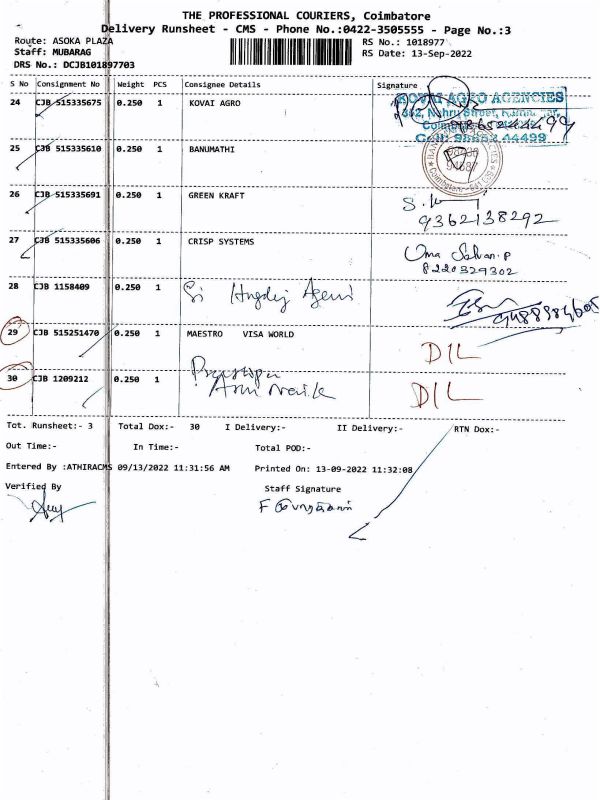 THE PROFESSIONAL COURIERS, Coimbatore
Delivery Runsheet - CMS - Phone No.:0422-3505555 - Page No.:3
Route: ASOKA PLAZA
RS No.: 1018977
Staff: MUBARAG
RS Date: 13-Sep-2022
DRS No.: DCJB101897703
S No Consignment No Weight PCS Consignee Details Signature
24 CJB 515335675 0.250 1 KOVAI AGRO
KOVAI AGRO AGENCIES
25 CJB 515335610 0.250 1 BANUMATHI
26 CJB 515335691 0.250 1 GREEN KRAFT
9362138292
27 CJB 515335606 0.250 1 CRISP SYSTEMS
Uma
8220329302
28 CJB 1158409 0.250 1
29 CJB 515251470 0.250 1 MAESTRO VISA WORLD D/L
30 CJB 1209212 0.250 1 D/L
Tot. Runsheet:- 3 Total Dox:- 30 I Delivery:- II Delivery:- RTN Dox:-
Out Time:- In Time:- Total POD:-
Entered By :ATHIRACMS 09/13/2022 11:31:56 AM Printed On: 13-09-2022 11:32:08
Verified By Staff Signature